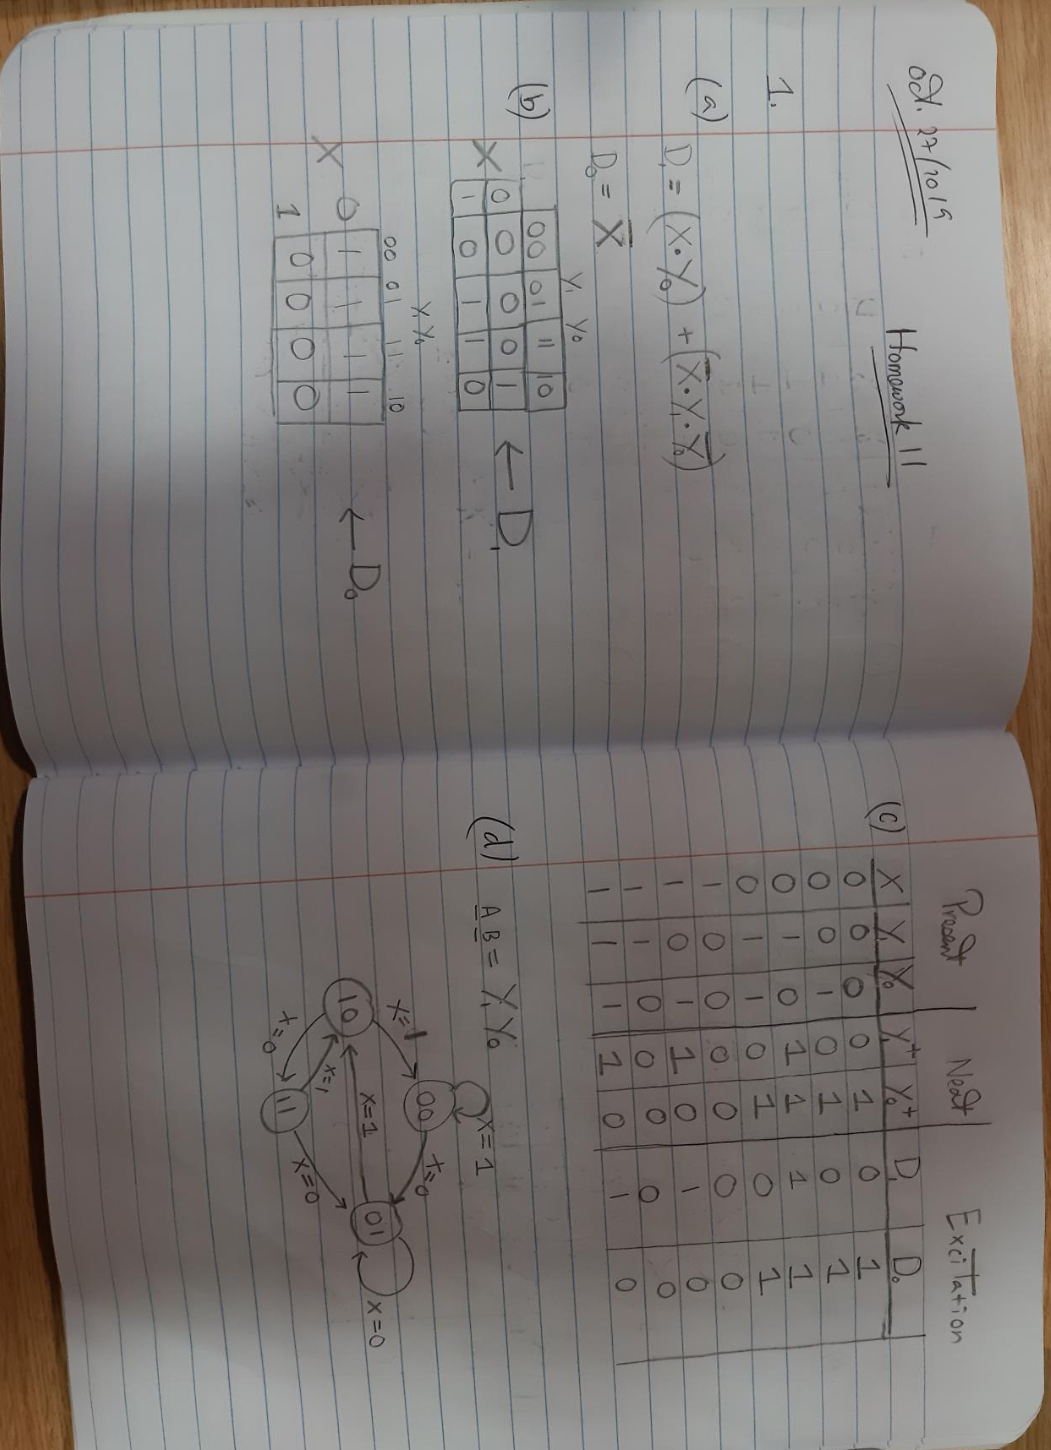 Oct. 27/2019
Homework 11
1.
(a) D₁ = (X·Y₀) + (X̅·Y₁·Y̅₀)
D₀ = X̅
(b) Y₁ Y₀
00 01 11 10
X 0 0 0 0 1 ← D₁
1 0 1 1 0
Y₁Y₀
00 01 11 10
X 0 1 1 1 1 ← D₀
1 0 0 0 0
Present | Next | Excitation
(c) X Y₁ Y₀ Y₁⁺ Y₀⁺ D₁ D₀
0 0 0 0 1 0 1
0 0 1 0 1 0 1
0 1 0 1 1 1 1
0 1 1 0 1 0 1
1 0 0 0 0 0 0
1 0 1 1 0 1 0
1 1 0 0 0 0 0
1 1 1 1 0 1 0
(d) AB = Y₁Y₀
X=1
00
X=1
X=0
10
X=1
01
X=0
X=0
X=1
11
X=0